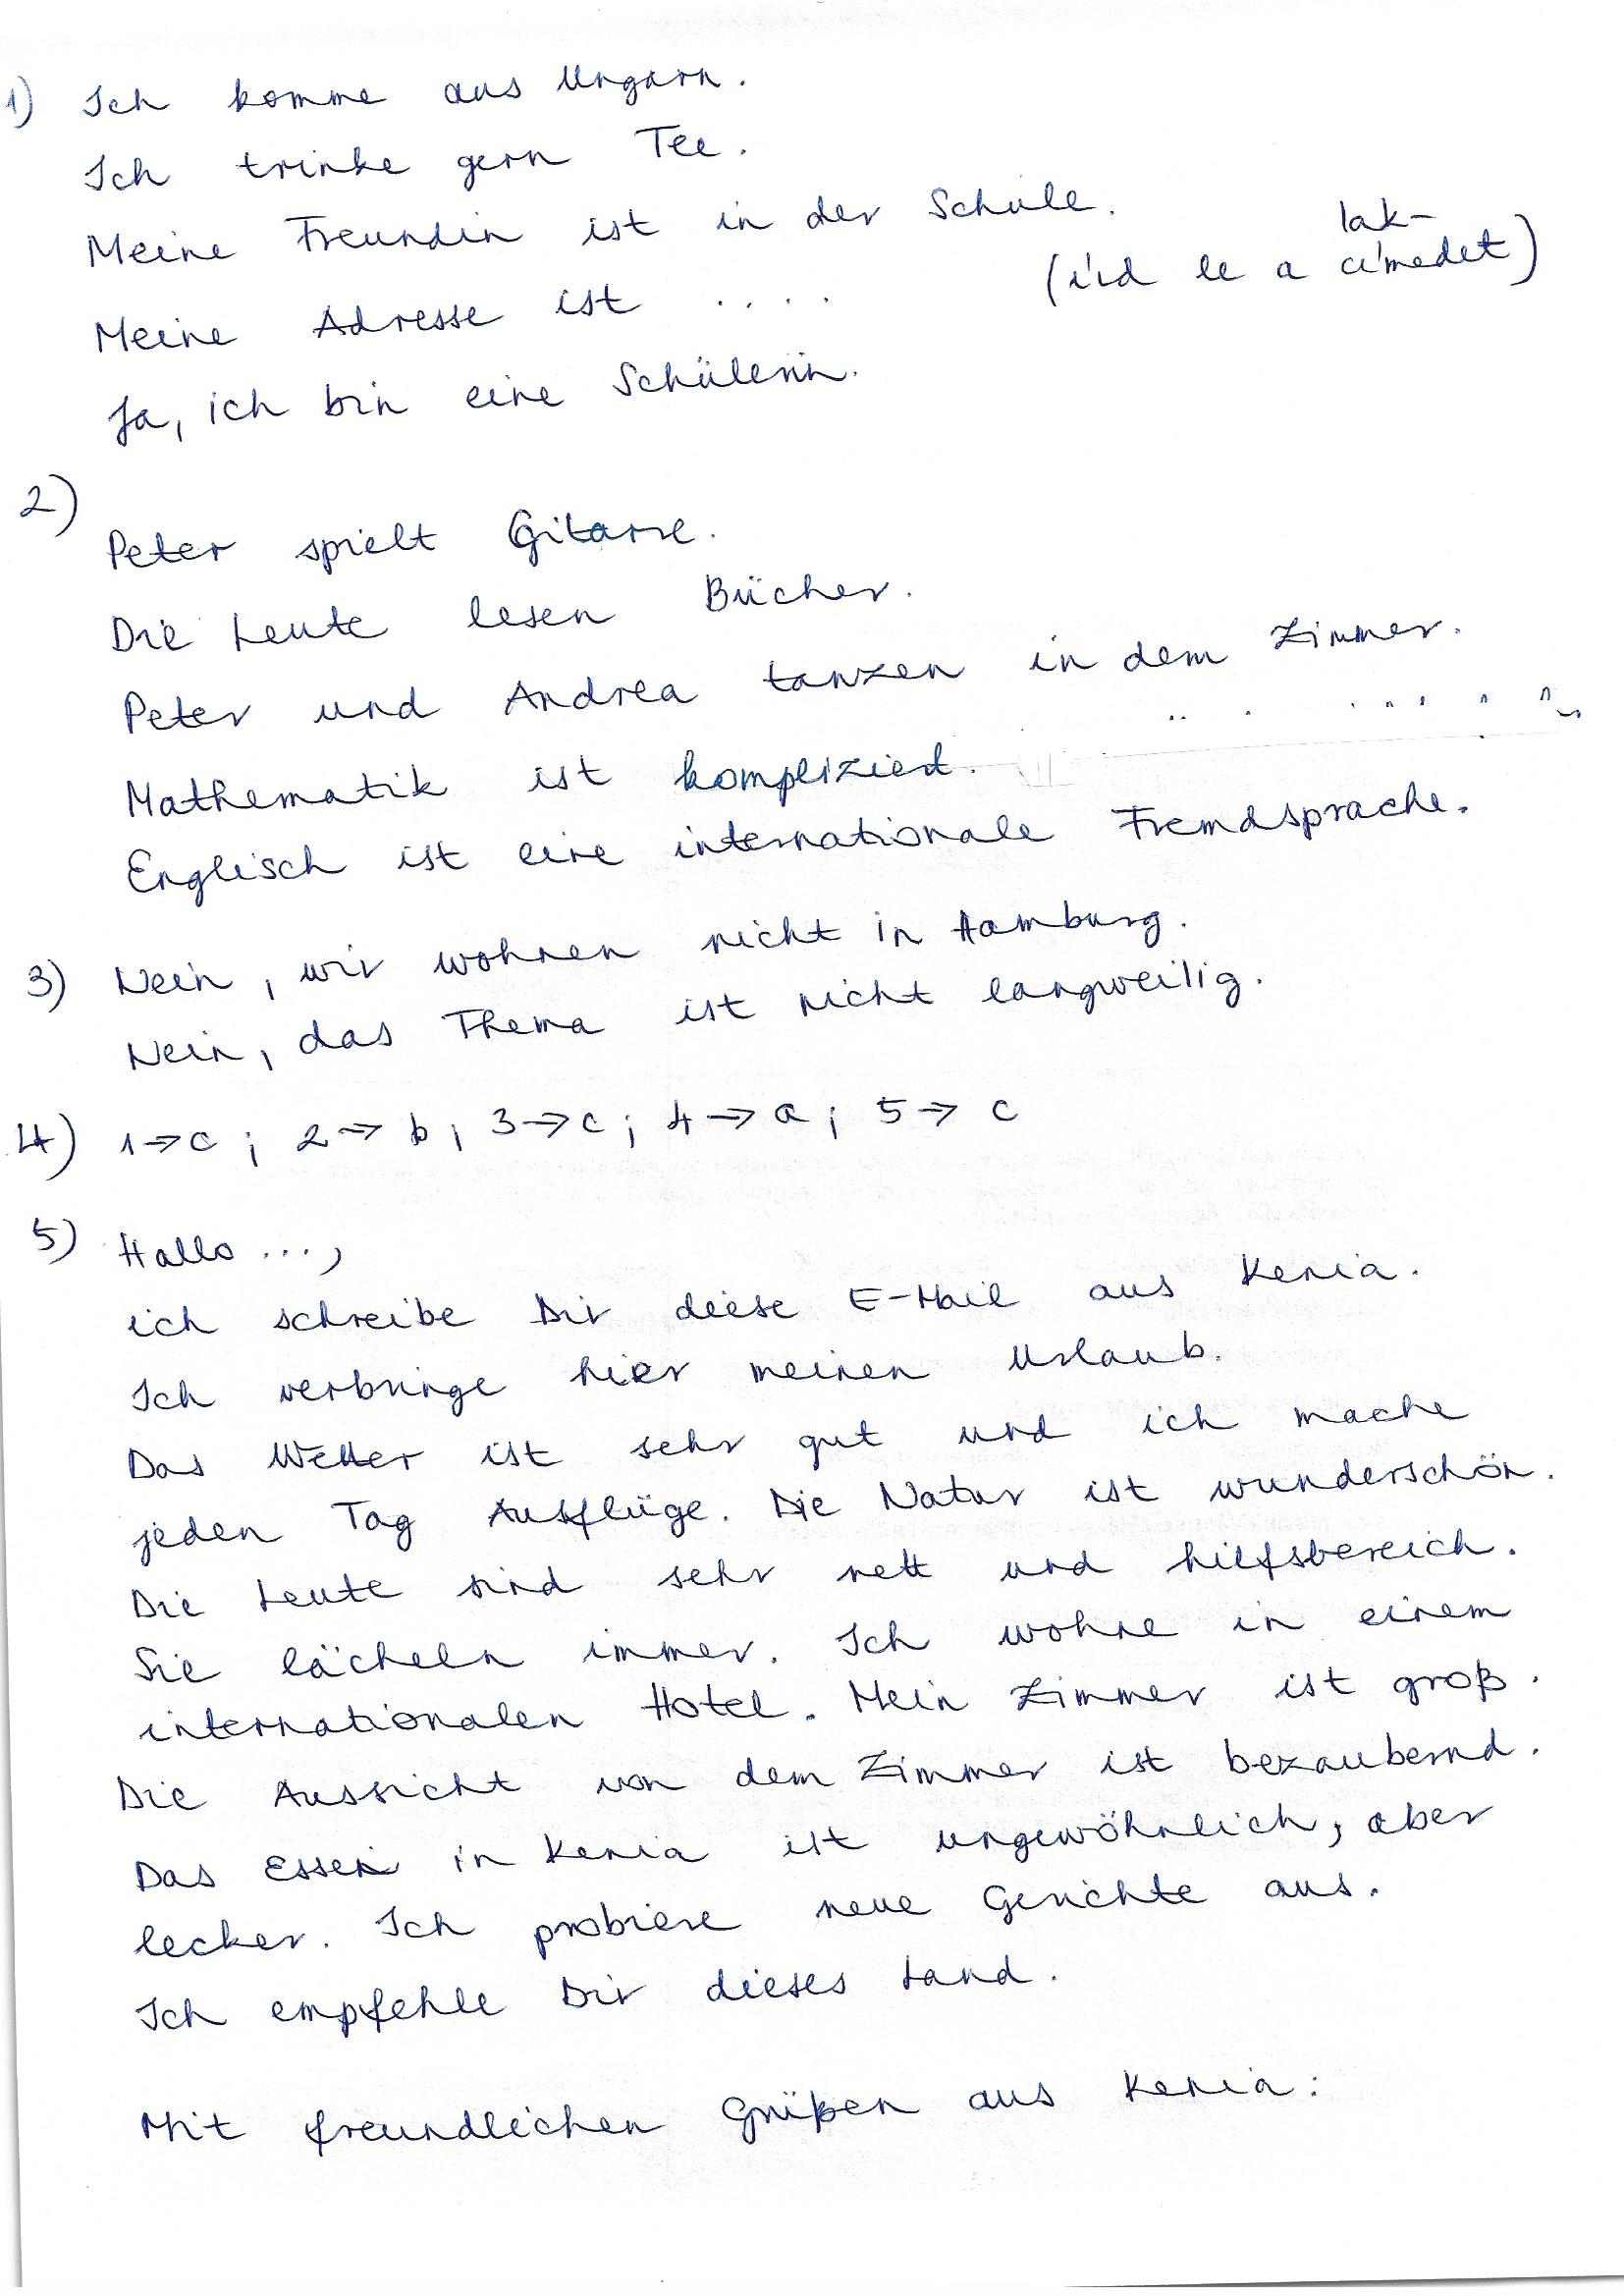 1) Ich komme aus Ungarn.
Ich trinke gern Tee.
Meine Freundin ist in der Schule.
Meine Adresse ist .... (írd le a lak-címedet)
Ja, ich bin eine Schülerin.
2)
Peter spielt Gitarre.
Die Leute lesen Bücher.
Peter und Andrea tanzen in dem Zimmer.
Mathematik ist kompliziert.
Englisch ist eine internationale Fremdsprache.
3) Nein, wir wohnen nicht in Hamburg.
Nein, das Thema ist nicht langweilig.
4) 1→c ; 2→b ; 3→c ; 4→a ; 5→c
5) Hallo ...,
ich schreibe Dir diese E-Mail aus Kenia.
Ich verbringe hier meinen Urlaub.
Das Wetter ist sehr gut und ich mache
jeden Tag Ausflüge. Die Natur ist wunderschön.
Die Leute sind sehr nett und hilfsbereich.
Sie lächeln immer. Ich wohne in einem
internationalen Hotel. Mein Zimmer ist groß.
Die Aussicht von dem Zimmer ist bezaubernd.
Das Essen in Kenia ist ungewöhnlich, aber
lecker. Ich probiere neue Gerichte aus.
Ich empfehle Dir dieses Land.
Mit freundlichen Grüßen aus Kenia: